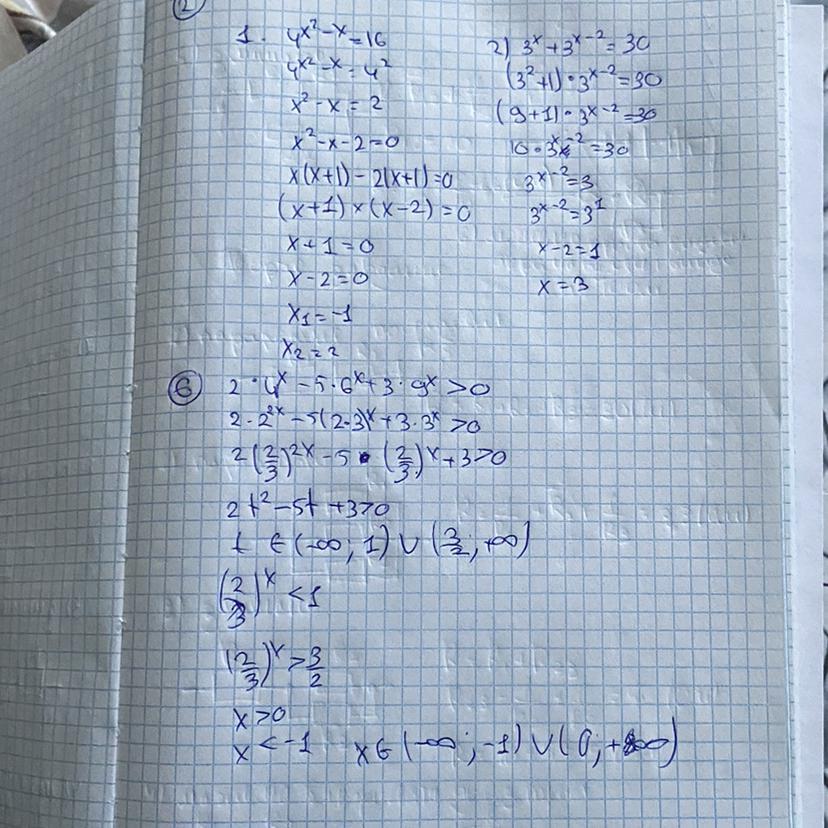 2
1. 4^{x²-x}=16
4^{x²-x}=4²
x²-x=2
x²-x-2=0
x(x+1)-2(x+1)=0
(x+1)×(x-2)=0
x+1=0
x-2=0
x₁=-1
x₂=2
2) 3ˣ+3ˣ⁻²=30
(3²+1)·3ˣ⁻²=30
(9+1)·3ˣ⁻²=30
10·3ˣ⁻²=30
3ˣ⁻²=3
3ˣ⁻²=3¹
x-2=1
x=3
6 2·4ˣ-5·6ˣ+3·9ˣ>0
2·2²ˣ-5(2·3)ˣ+3·3ˣ>0
2(2/3)²ˣ-5·(2/3)ˣ+3>0
2t²-5t+3>0
t ∈(-∞; 1)∪(3/2; +∞)
(2/3)ˣ<1
(2/3)ˣ>3/2
x>0
x<-1 x∈(-∞; -1)∪(0; +∞)